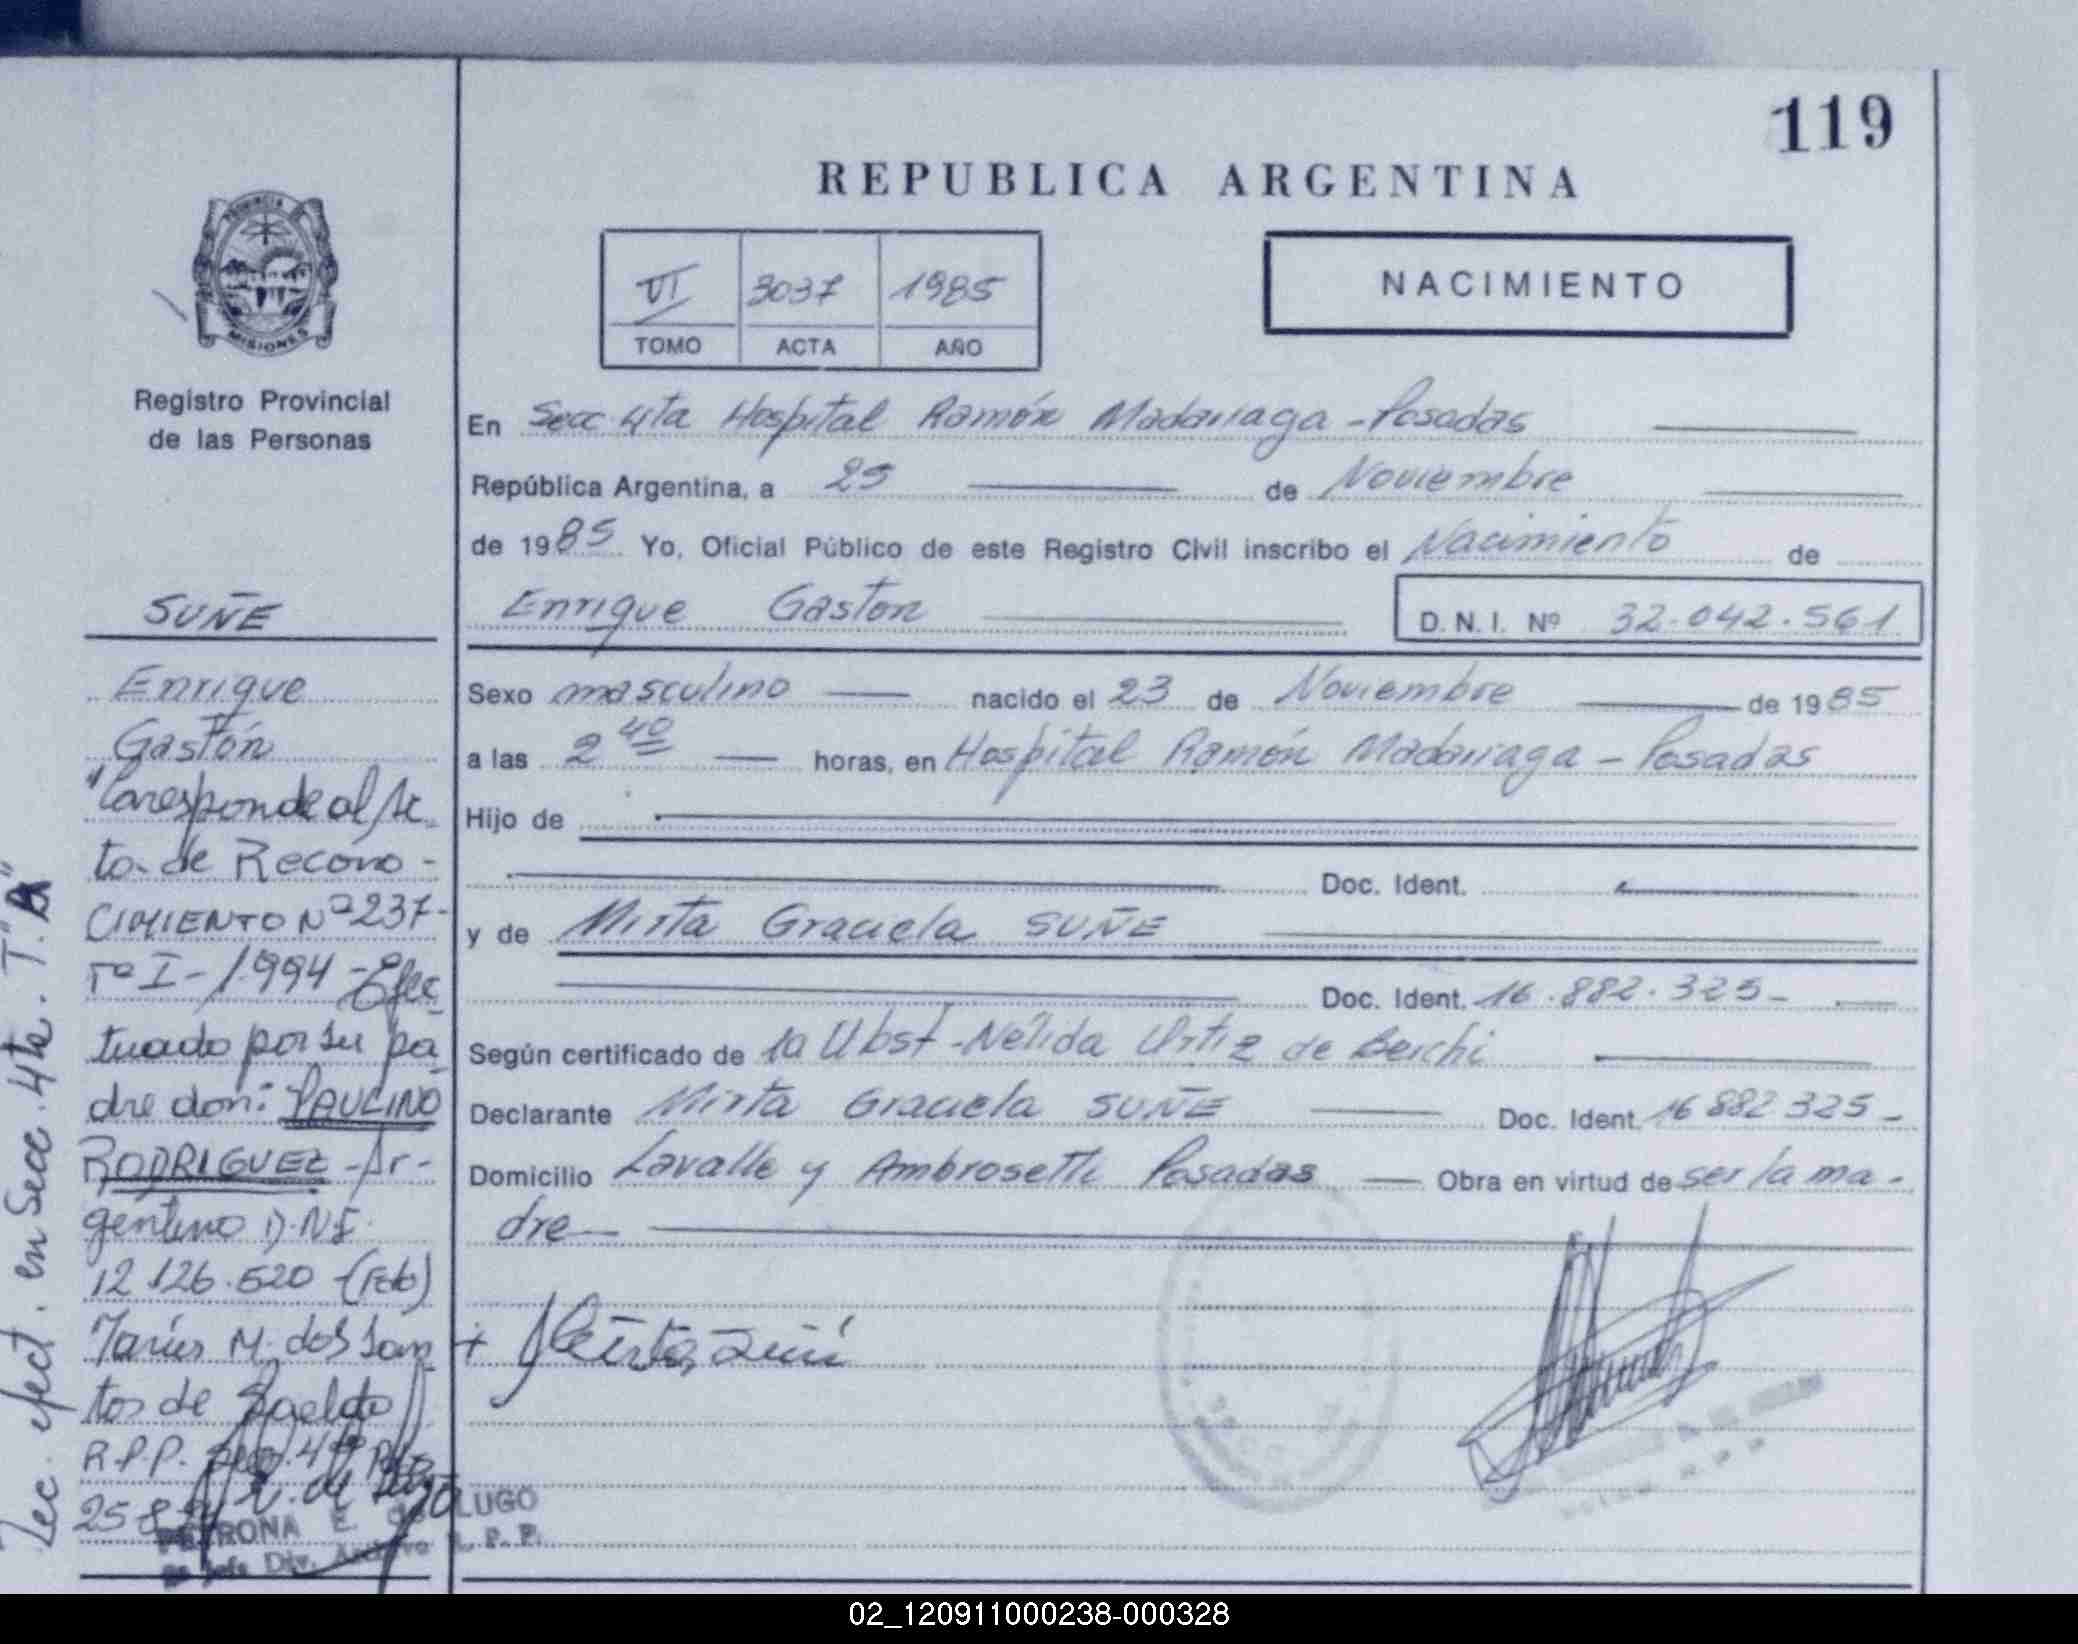 119
REPUBLICA ARGENTINA
VI 3037 1985
TOMO ACTA AÑO
NACIMIENTO
PROVINCIA DE
MISIONES
Registro Provincial
de las Personas
En Secc 4ta Hospital Ramón Madariaga - Posadas
República Argentina, a 25 de Noviembre
de 1985 Yo, Oficial Público de este Registro Civil inscribo el Nacimiento de
Enrique Gaston D.N.I. Nº 32.042.561
Sexo masculino nacido el 23 de Noviembre de 1985
a las 2 40 horas, en Hospital Ramón Madariaga - Posadas
Hijo de
Doc. Ident.
y de Mirta Graciela SUÑE
Doc. Ident. 16.882.325-
Según certificado de la Obst-Nélida Ortiz de Beichi
Declarante Mirta Graciela SUÑE Doc. Ident. 16 882 325-
Domicilio Lavalle y Ambrosetti Posadas Obra en virtud de ser la ma-
dre
SUÑE
Enrique
Gastón
"Corresponde al Ac
ta de Recono-
CIMIENTO Nº 237-
Tº I-1994-Efec
tuado por su pa
dre don: PAULINO
RODRIGUEZ -Ar-
gentino D.N.I.
12.126.520 (Fdo)
M. dos San
tos de
R.P.P. Secc. 4ta
25 8
PETRONA E. de LUGO
Jefe Div. Archivo R.P.P.
efect. en Secc. 4ta. T. "A"
02_120911000238-000328